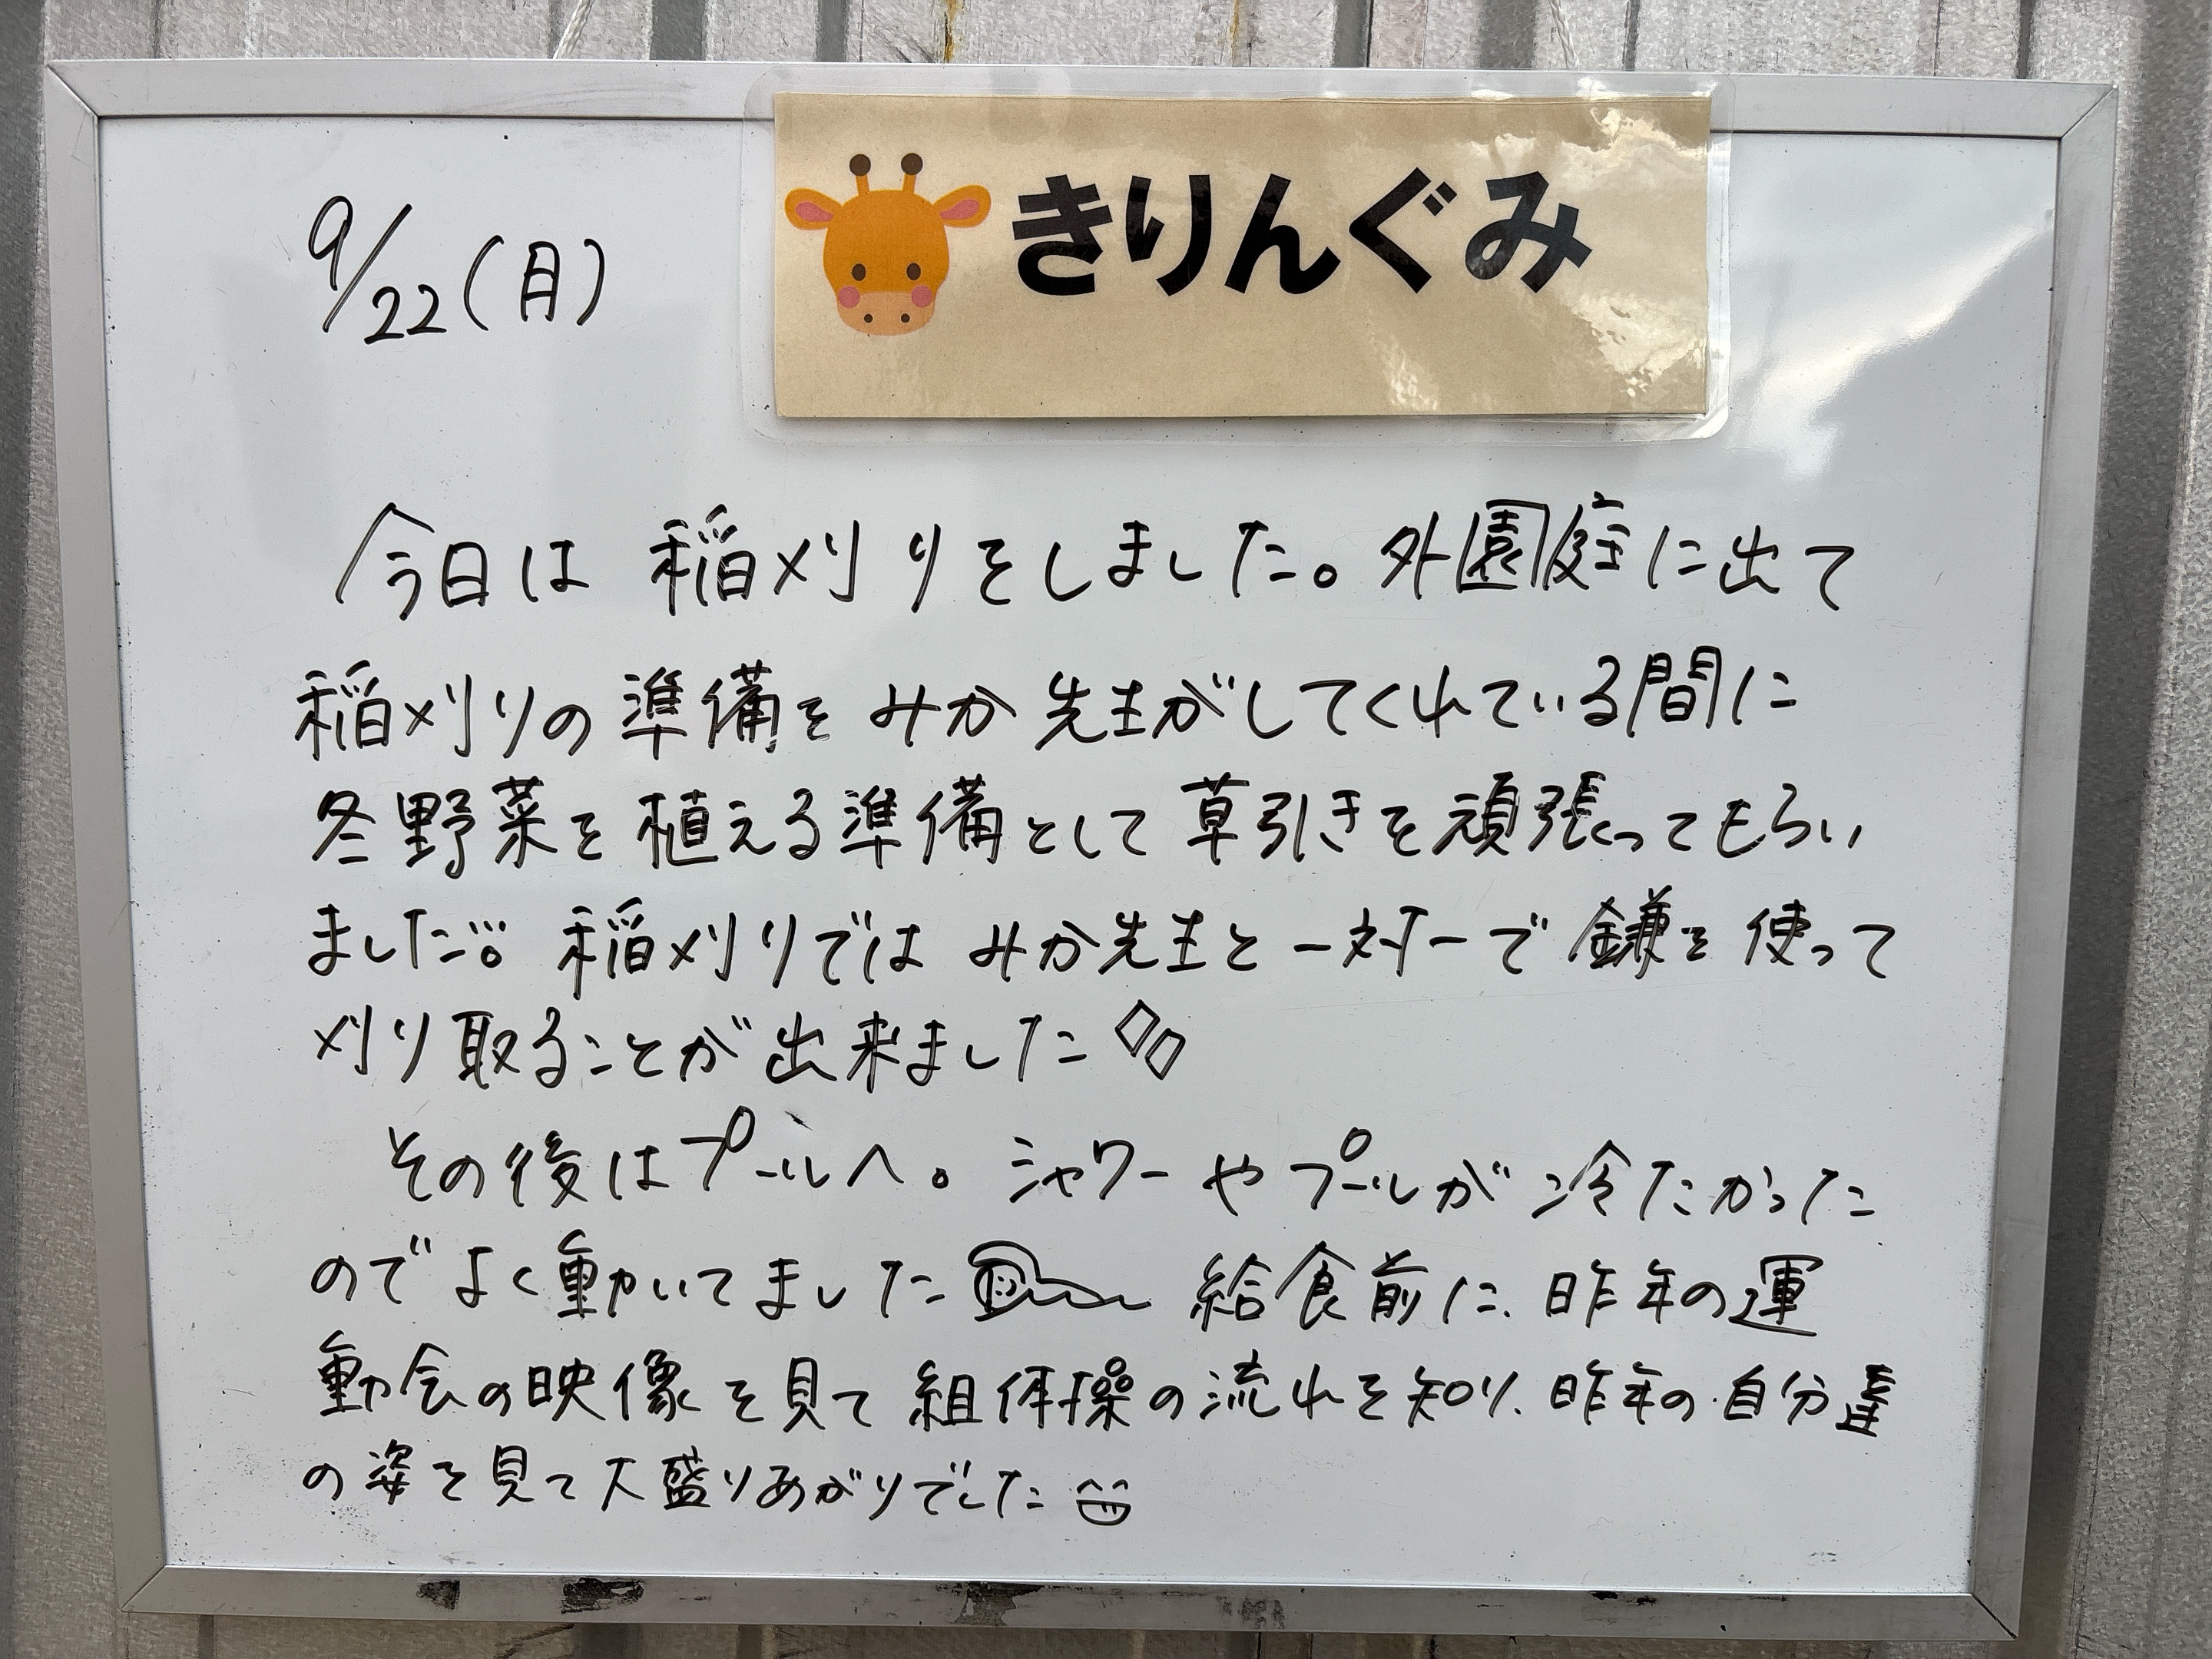 きりんぐみ
9/22(月)
今日は 稲刈りをしました。外園庭に出て
稲刈りの準備を みか先生がしてくれている間に
冬野菜を植える準備として草引きを頑張ってもらい
ました。稲刈りでは みか先生と一対一で鎌を使って
刈り取ることが出来ました
その後はプールへ。シャワーやプールが冷たかった
のでよく動いてました 給食前に、昨年の運
動会の映像を見て組体操の流れを知り、昨年の自分達
の姿を見て大盛りあがりでした